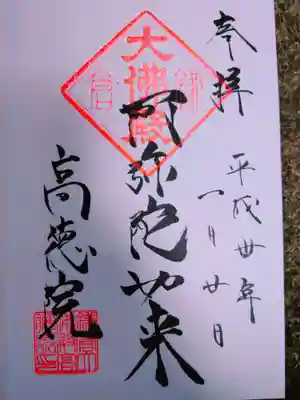 奉拝
平成卅年
一月廿日
大佛殿
阿弥陀如来
高徳院